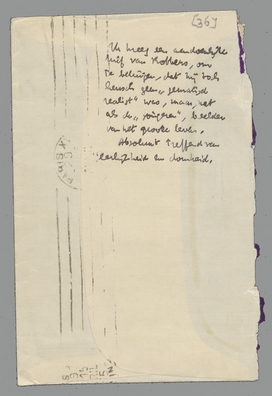 [36]
Ik kreeg een aandoenlijke
brief van Robbers, om
te betuigen, dat hij toch
heusch geen „gematigd
realist” was, maar, net
als de „jongeren”, beelder
van het groote leven.
Absoluut treffend van
eerlijkheid en domheid.